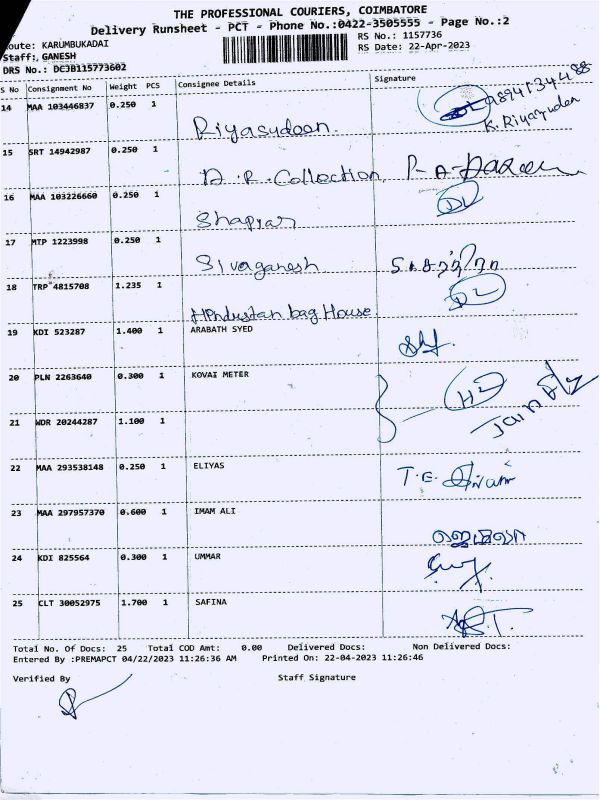 THE PROFESSIONAL COURIERS, COIMBATORE
Delivery Runsheet - PCT - Phone No.:0422-3505555 - Page No.:2
Route: KARUMBUKADAI RS No.: 1157736
Staff: GANESH RS Date: 22-Apr-2023
DRS No.: DCJB115773602
S No Consignment No Weight PCS Consignee Details Signature
14 MAA 103446837 0.250 1 Riyasudeen. 9894134488
K. Riyayuden
15 SRT 14942987 0.250 1 A.R. Collection, P-A-
16 MAA 103226660 0.250 1 Shapyar DL
17 MTP 1223998 0.250 1 Sivaganesh
18 TRP 4815708 1.235 1 Hindustan bag House DL
19 KDI 523287 1.400 1 ARABATH SYED
20 PLN 2263640 0.300 1 KOVAI METER
21 WDR 20244287 1.100 1 Jain
22 MAA 293538148 0.250 1 ELIYAS T.E.
23 MAA 297957370 0.600 1 IMAM ALI
24 KDI 825564 0.300 1 UMMAR
25 CLT 30052975 1.700 1 SAFINA
Total No. Of Docs: 25 Total COD Amt: 0.00 Delivered Docs: Non Delivered Docs:
Entered By :PREMAPCT 04/22/2023 11:26:36 AM Printed On: 22-04-2023 11:26:46
Verified By Staff Signature